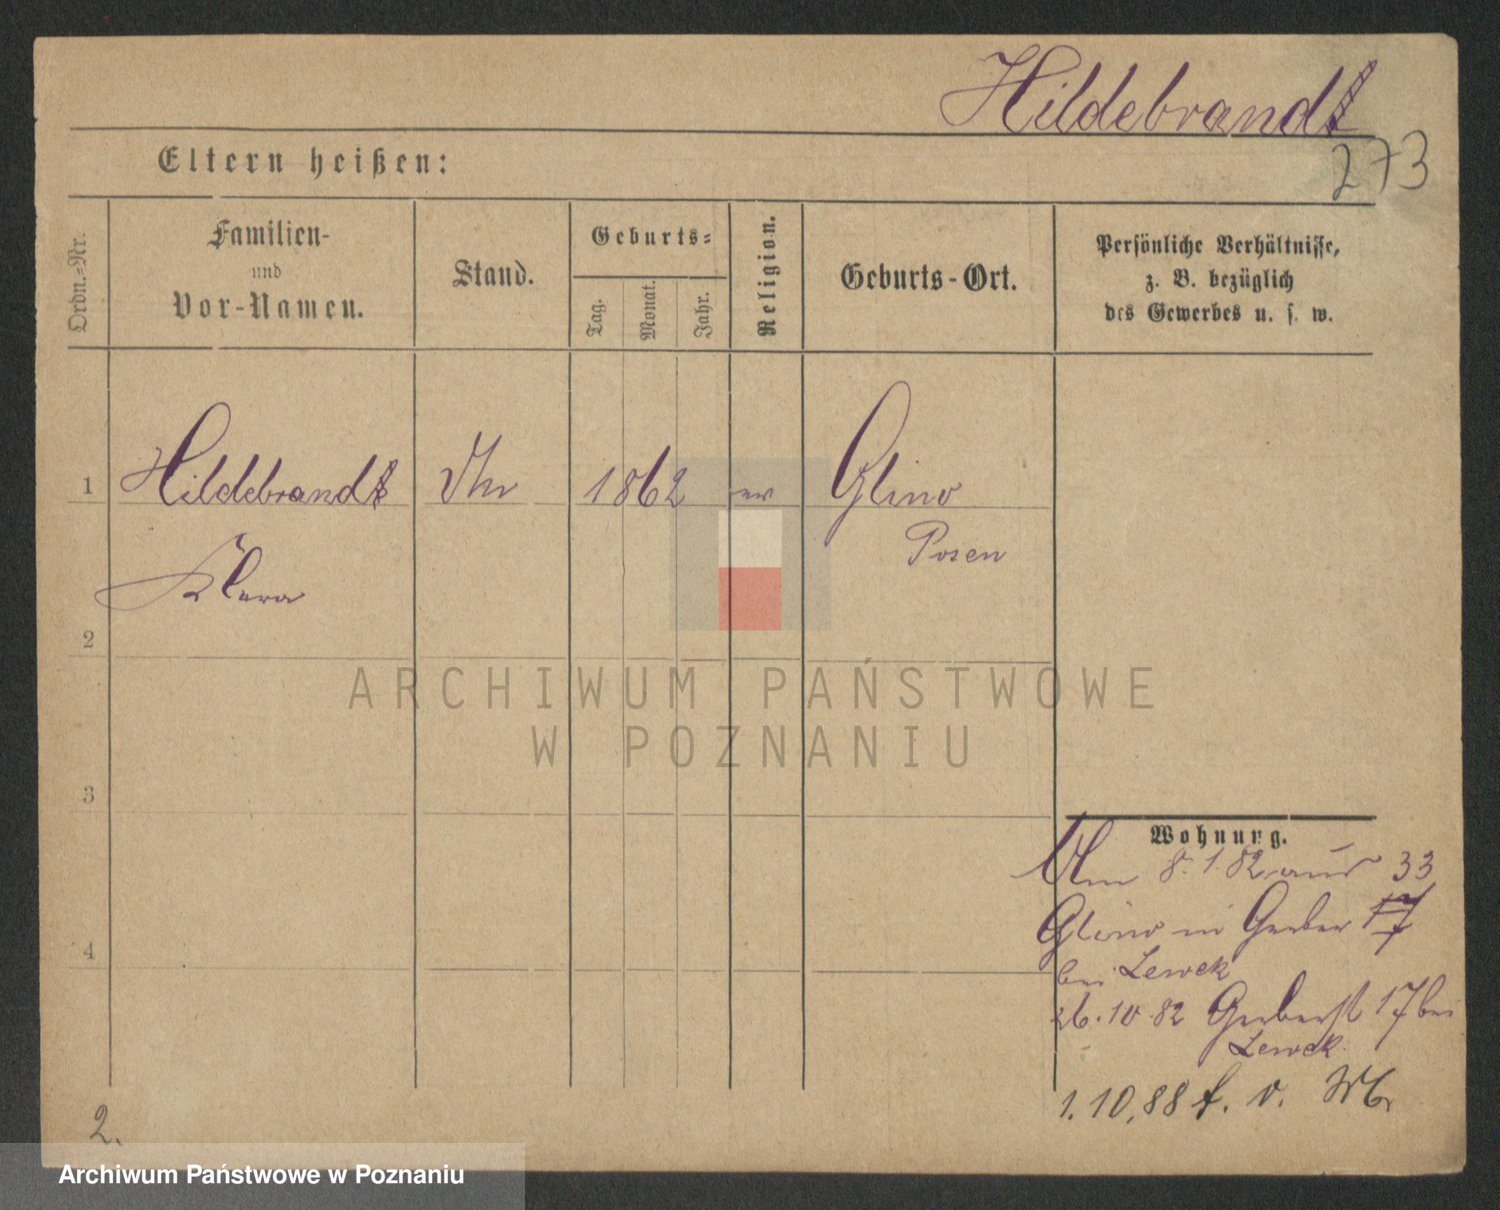 Hildebrandt
273
Eltern heißen:
Ordn.-Nr.
Familien-
und
Vor-Namen.
Stand.
Geburts-
Tag.
Monat.
Jahr.
Religion.
Geburts-Ort.
Persönliche Verhältnisse,
z. B. bezüglich
des Gewerbes u. s. w.
1
Hildebrandt
1862
ev
Glino
Posen
Klara
2
ARCHIWUM PAŃSTWOWE
W POZNANIU
3
Wohnung.
8.1.82 aus 33
Glino in Gerber 17
bei Lewek
4
26.10.82 Gerberst 17 bei
Lewek
1.10.88 f. v.
2.
Archiwum Państwowe w Poznaniu